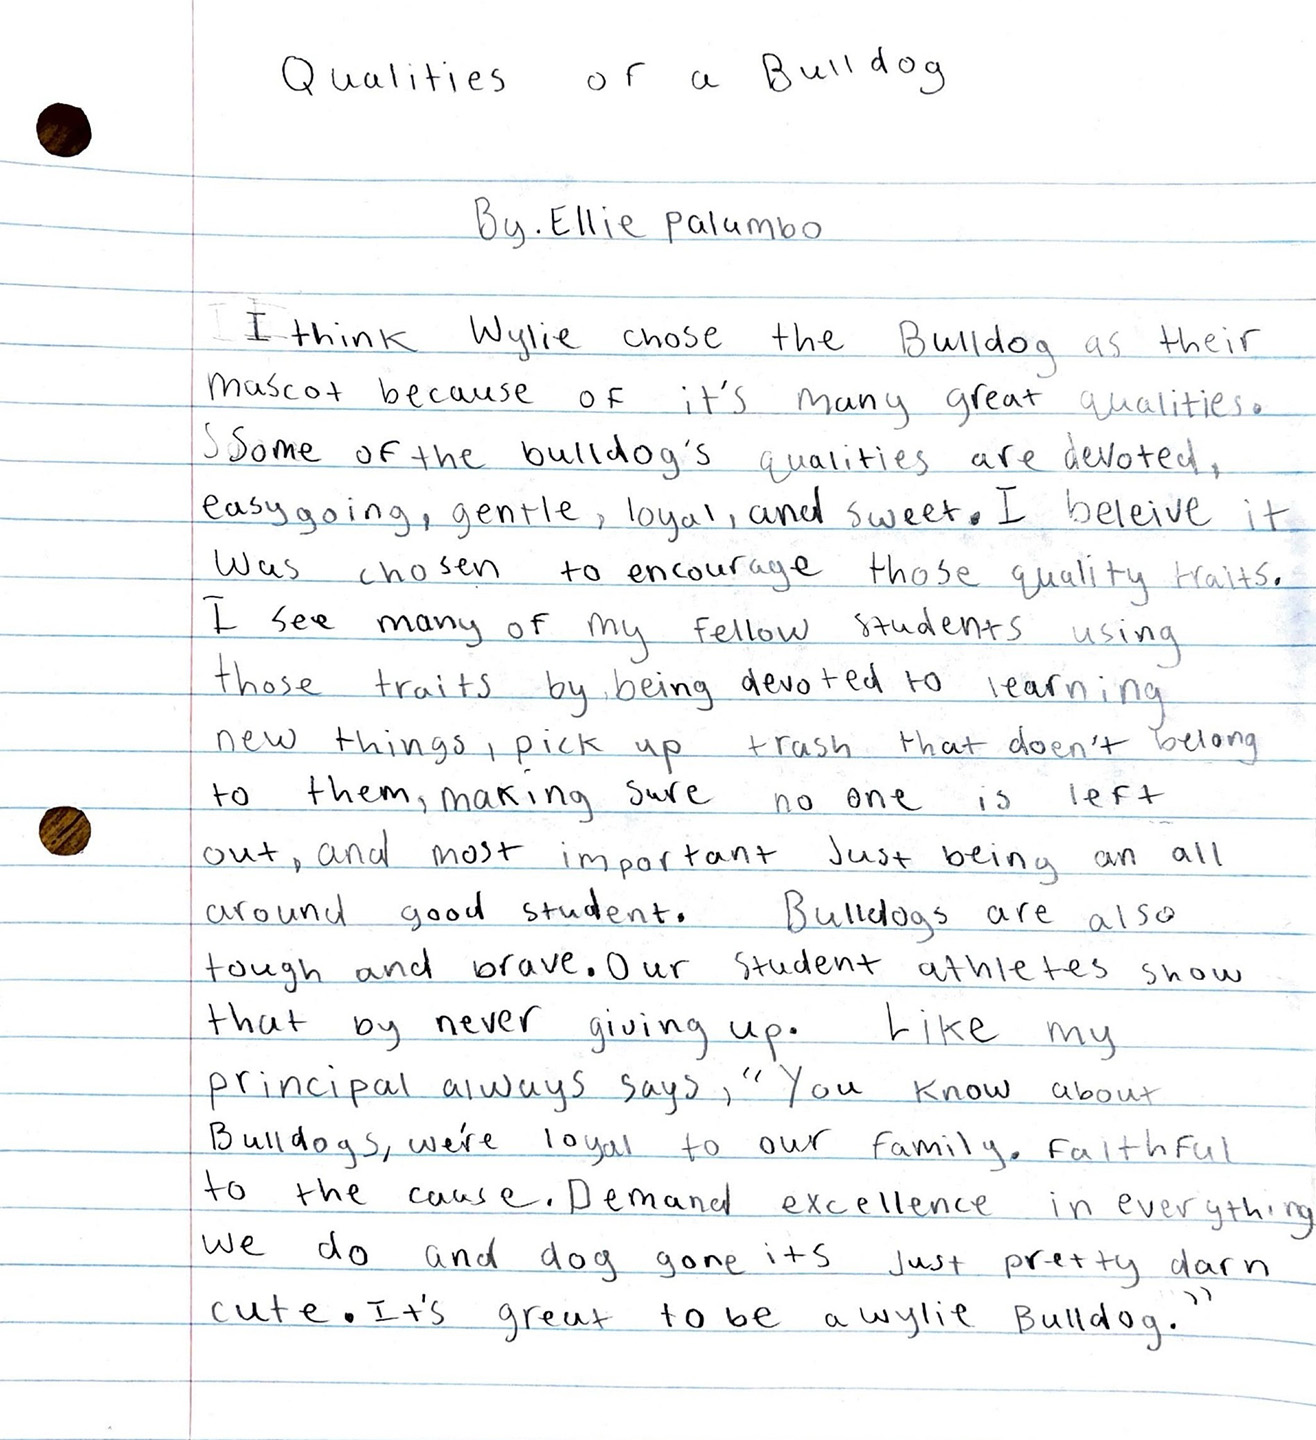 Qualities of a Bulldog
By. Ellie Palumbo
I think Wylie chose the Bulldog as their
mascot because of it's many great qualities.
Some of the bulldog's qualities are devoted,
easygoing, gentle, loyal, and sweet. I beleive it
was chosen to encourage those quality traits.
I see many of my fellow students using
those traits by being devoted to learning
new things, pick up trash that doen't belong
to them, making sure no one is left
out, and most important just being an all
around good student. Bulldogs are also
tough and brave. Our student athletes show
that by never giving up. Like my
principal always says, "You know about
Bulldogs, we're loyal to our family. Faithful
to the cause. Demand excellence in everything
we do and dog gone its just pretty darn
cute. It's great to be a wylie Bulldog."